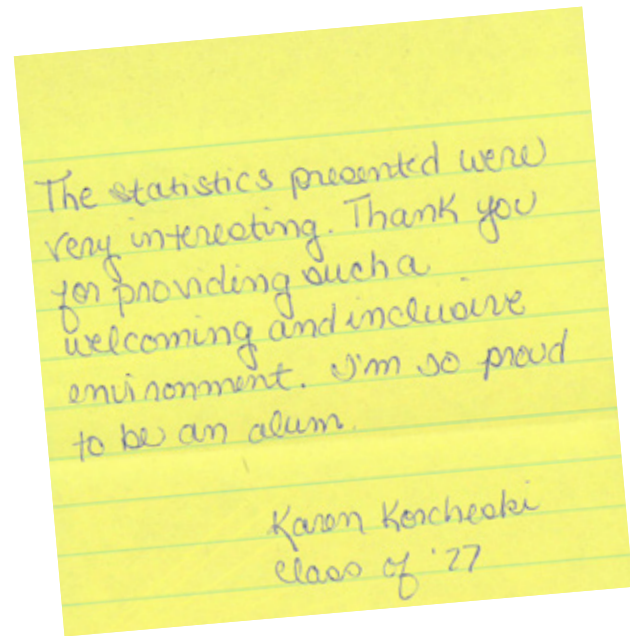 The statistics presented were
very interesting. Thank you
for providing such a
welcoming and inclusive
environment. I'm so proud
to be an alum.
Karen Korcheski
Class of '77